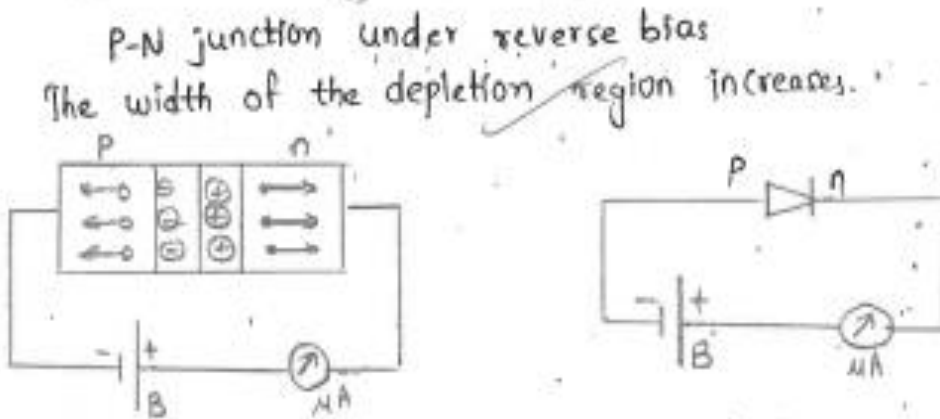 P-N junction under reverse bias
The width of the depletion region increases.
P n
- +
B μA
P n
- +
B μA